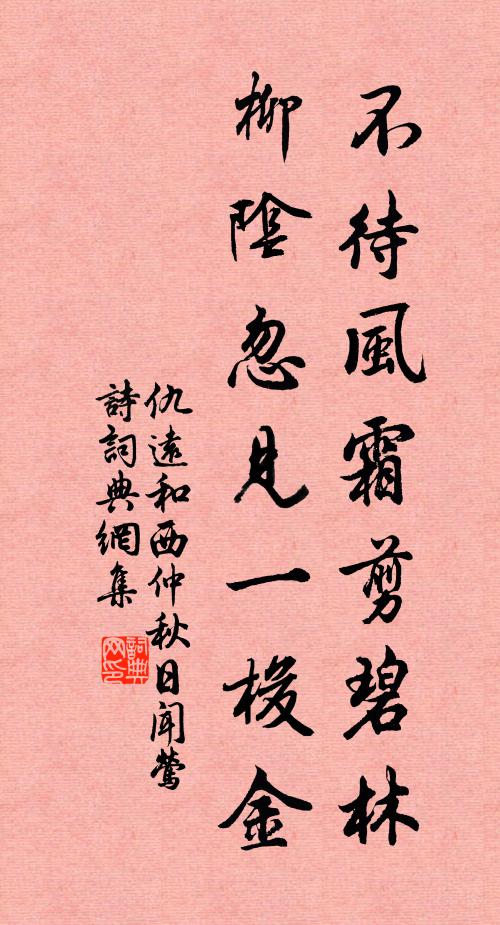 不待風霜剪碧林
柳陰忽見一梭金
仇遠和西仲秋日聞鶯
詩詞典網集
詞典網印